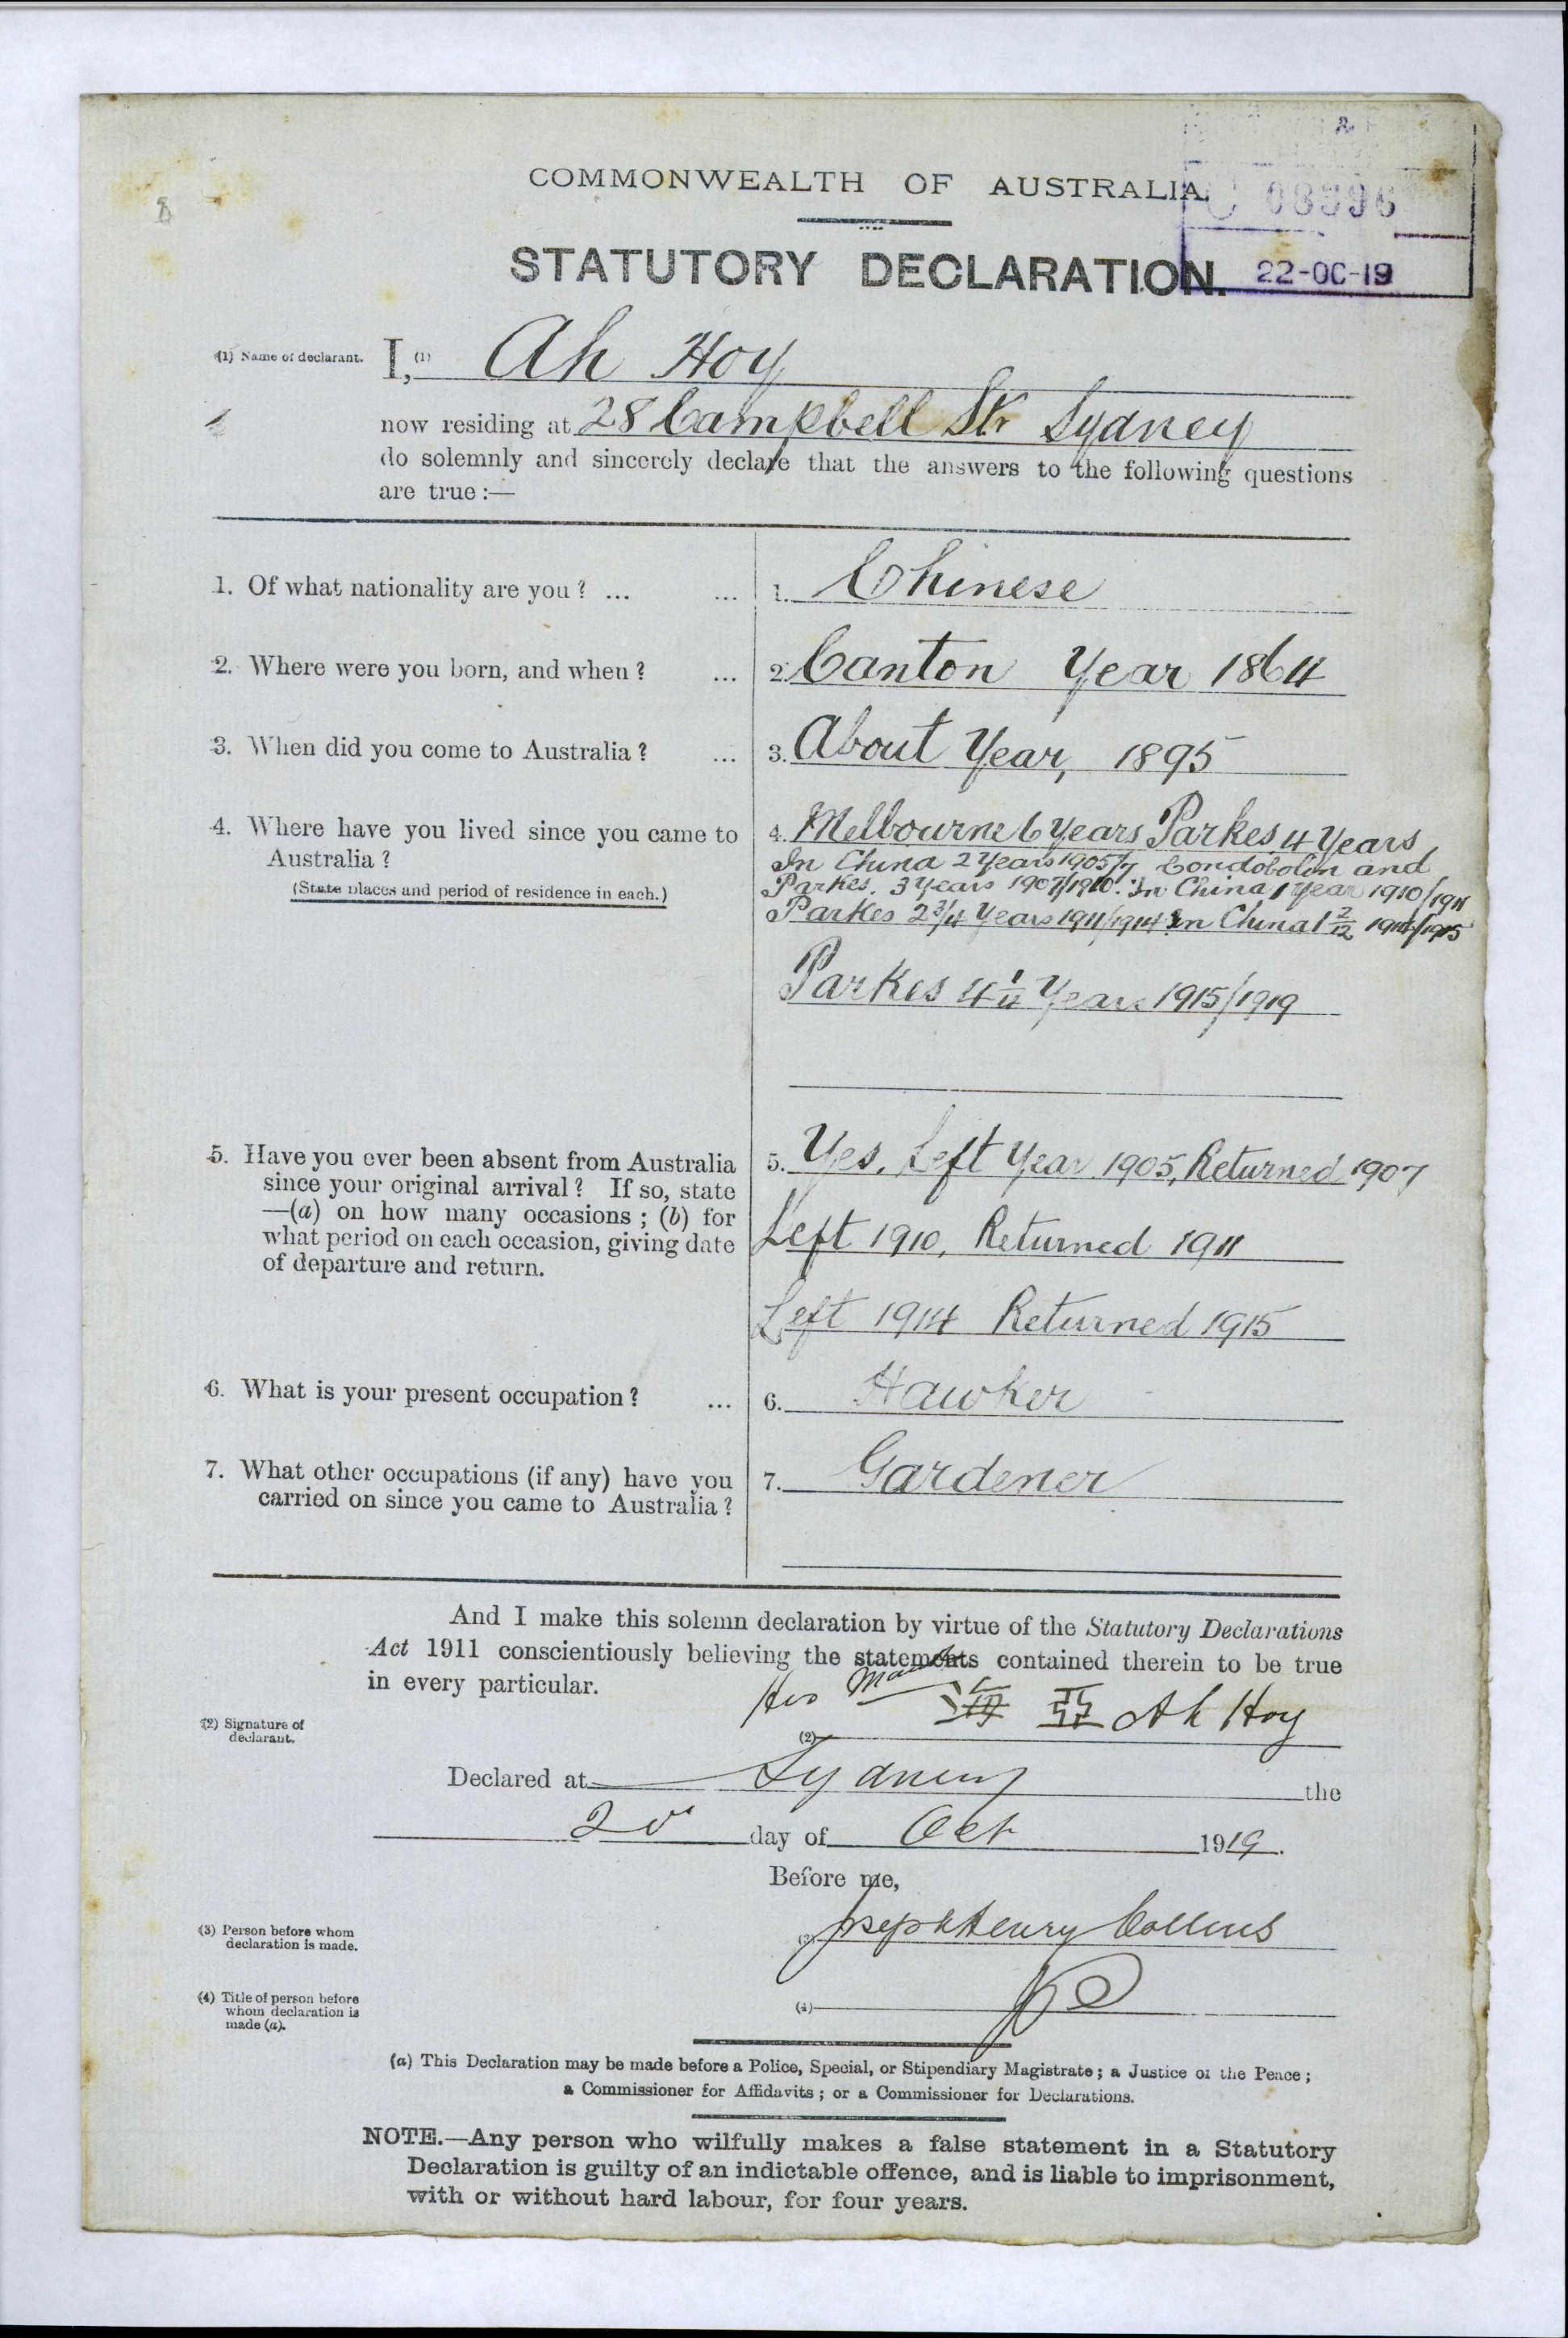 C 08996
22-OC-19
COMMONWEALTH OF AUSTRALIA
STATUTORY DECLARATION.
(1) Name of declarant. I, (1) Ah Hoy
now residing at 28 Campbell Str Sydney
do solemnly and sincerely declare that the answers to the following questions
are true :—
1. Of what nationality are you ? ... ... 1. Chinese
2. Where were you born, and when ? ... 2. Canton Year 1864
3. When did you come to Australia ? ... 3. About Year, 1895
4. Where have you lived since you came to
Australia ?
(State places and period of residence in each.)
4. Melbourne 6 Years Parkes 4 Years
In China 2 Years 1905/7 Condobolin and
Parkes. 3 Years 1907/1910. In China 1 Year 1910/1911
Parkes 2 3/4 Years 1911/1914 In China 1 2/12 1914/1915
Parkes 4 Years 1915/1919
5. Have you ever been absent from Australia
since your original arrival ? If so, state
—(a) on how many occasions ; (b) for
what period on each occasion, giving date
of departure and return.
5. Yes. Left Year 1905, Returned 1907
Left 1910, Returned 1911
Left 1914 Returned 1915
6. What is your present occupation ? ... 6. Hawker
7. What other occupations (if any) have you
carried on since you came to Australia ?
7. Gardener
And I make this solemn declaration by virtue of the Statutory Declarations
Act 1911 conscientiously believing the statements contained therein to be true
in every particular.
His Mark
(2) Signature of
declarant.
(2) 海 亞 Ah Hoy
Declared at Sydney the
20 day of Oct 1919.
Before me,
(3) Person before whom
declaration is made.
(3) Joseph Henry Collins
(4) Title of person before
whom declaration is
made (a).
(4) JP
(a) This Declaration may be made before a Police, Special, or Stipendiary Magistrate ; a Justice of the Peace ;
a Commissioner for Affidavits ; or a Commissioner for Declarations.
NOTE.—Any person who wilfully makes a false statement in a Statutory
Declaration is guilty of an indictable offence, and is liable to imprisonment,
with or without hard labour, for four years.